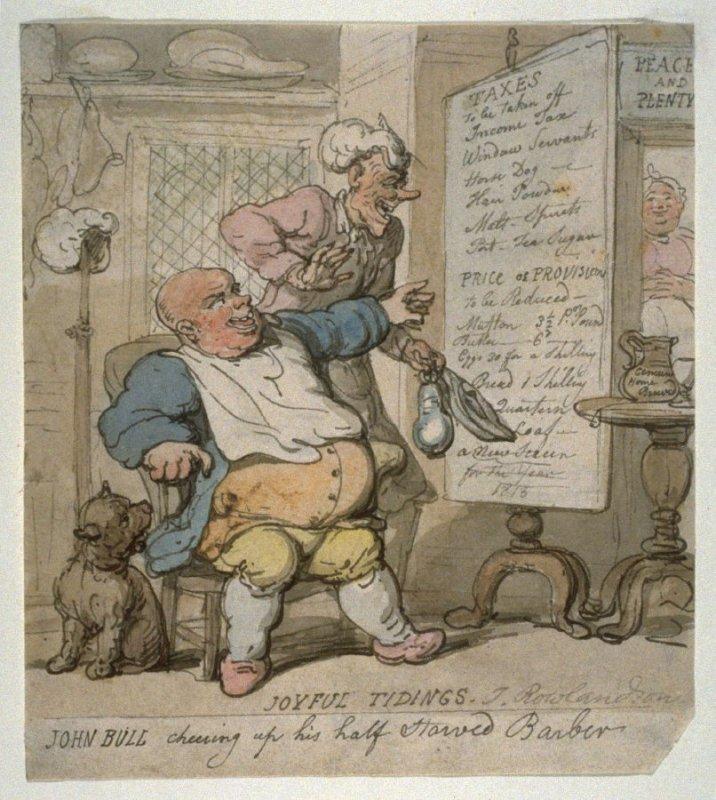 TAXES
to be taken off
Income Tax
Window Servants
Horse Dog —
Hair Powder
Malt - Spirits
Port - Tea Sugar
PRICE OF PROVISION
to be Reduced —
Mutton 3½ Pr Pound
Butter — 6d
Eggs 20 for a Shilling
Bread 1 Shilling
Quartern
Loaf —
a New Screen
for the Year
PEACE
AND
PLENTY
Home
Brewed
JOYFUL TIDINGS. T. Rowlandson
JOHN BULL cheering up his half Starved Barber